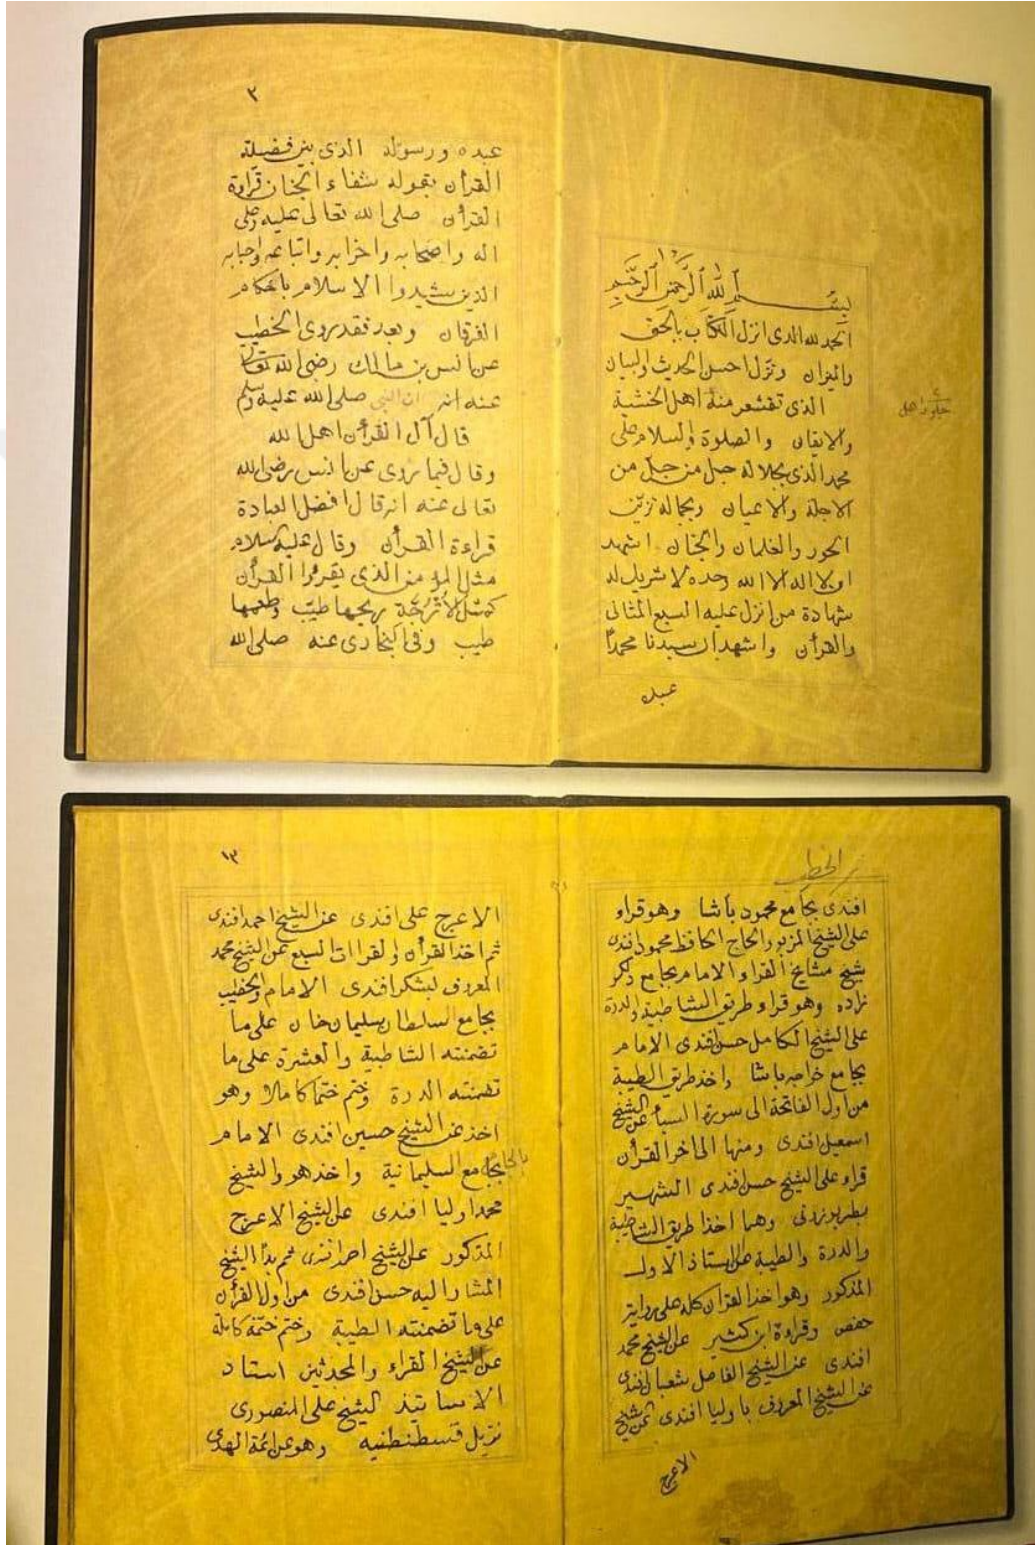 بسم الله الرحمن الرحيم
الحمد لله الذى انزل الكتاب بالحق
والميزان ونزل احسن الحديث والبيان
الذى تقشعر منه اهل الخشية
والايقان والصلوة والسلام على
محمد الذى بجلاله جبل من جبل من
الاجلة والاعيان وبجماله تزين
الحور والغلمان والجنان اشهد
ان لا اله الا الله وحده لا شريك له
شهادة من انزل عليه السبع المثانى
والقرأن واشهد ان سيدنا محمدا
عبده
جلود اهل
٣
عبده ورسوله الذى بين فضيلة
القرأن بقوله شفاء الجنان قراءة
القرأن صلى الله تعالى عليه وعلى
اله واصحابه واحزابه واتباعه واحبابه
الذين شيدوا الاسلام باحكام
الفرقان وبعد فقد روى الخطيب
عن انس بن مالك رضى الله تعالى
عنه انه ان النبى صلى الله عليه وسلم
قال آل القرأن اهل الله
وقال فيما روى عن انس رضى الله
تعالى عنه انه قال افضل العبادة
قراءة القرأن وقال عليه السلام
مثل المؤمن الذى يقرؤا القرأن
كمثل الأترجة ريحها طيب وطعمها
طيب وفى البخارى عنه صلى الله
افندى بجامع محمود باشا وهو قراء
على الشيخ المزبور الحاج الحافظ محمود افندى
شيخ مشايخ القراء والامام بجامع
زاده وهو قراء طريق الشاطبية والدرة
على الشيخ الكامل حسن افندى الامام
بجامع خواجه باشا واخذ طريق الطيبة
من اول الفاتحة الى سورة السبأ عن الشيخ
اسمعيل افندى ومنها الى اخر القرأن
قراء على الشيخ حسن افندى الشهير
وهما اخذا طريق الشاطبية
والدرة والطيبة عن الاستاذ الاول
المذكور وهو اخذ القرأن كله على رواية
حفص وقراءة ابن كثير عن الشيخ محمد
افندى عن الشيخ الفاضل شعبان افندى
عن الشيخ المعروف باوليا افندى عن شيخ
الاعرج
١٣
الاعرج على افندى عن الشيخ احمد افندى
ثم اخذ القرأن والقراات السبع عن الشيخ محمد
المعروف افندى الامام والخطيب
بجامع السلطان سليمان خان على ما
تضمنته الشاطبية والعشرة على ما
تضمنته الدرة وختم ختما كاملا وهو
اخذ عن الشيخ حسين افندى الامام
بجامع السليمانية واخذ هو والشيخ
محمد اوليا افندى عن الشيخ الاعرج
المذكور عن الشيخ احمد افندى ثم بدأ الشيخ
المشار اليه حسن افندى من اول القرأن
على ما تضمنته الطيبة وختم ختمة كاملة
عن الشيخ القراء والمحدثين استاد
الاساتيذ الشيخ على المنصورى
نزيل قسطنطنيه وهو عن ائمة الهدى